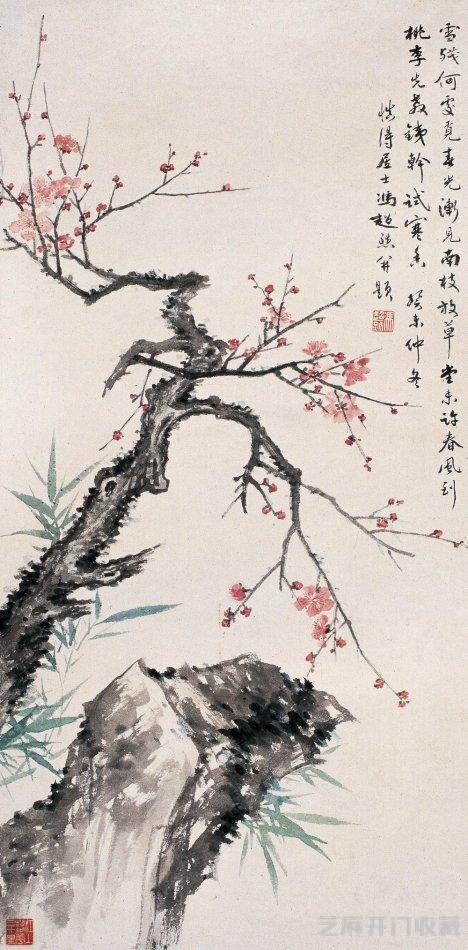 雪残何处觅春光渐见南枝放草堂未许春风到
桃李先教铁幹试寒香 癸未仲冬
慥得居士冯超然并题
芝麻开门收藏